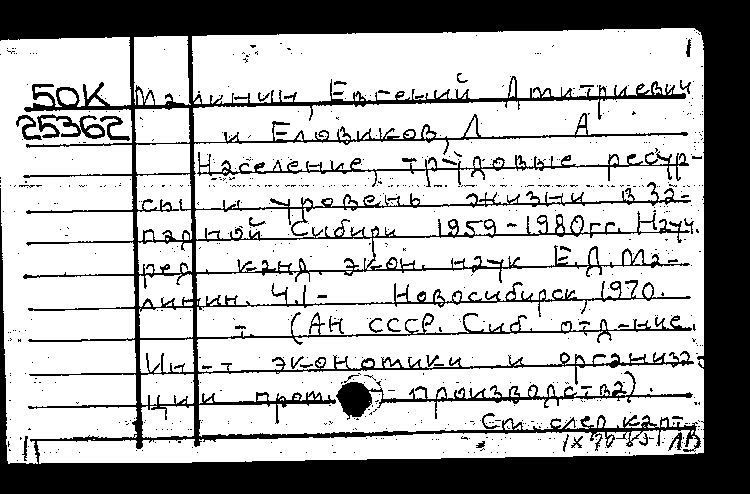 1
50К Малинин, Евгений Дмитриевич
25362 и Еловиков, Л А
Население, трудовые ресур-
сы и уровень жизни в За-
падной Сибири 1959-1980гг. Науч.
ред. канд. экон. наук Е.Д.Ма-
линин. Ч.1- Новосибирск, 1970.
- т. (АН СССР. Сиб. отд-ние.
Ин-т экономики и организа-
ции пром. производства).
См. след. карт.